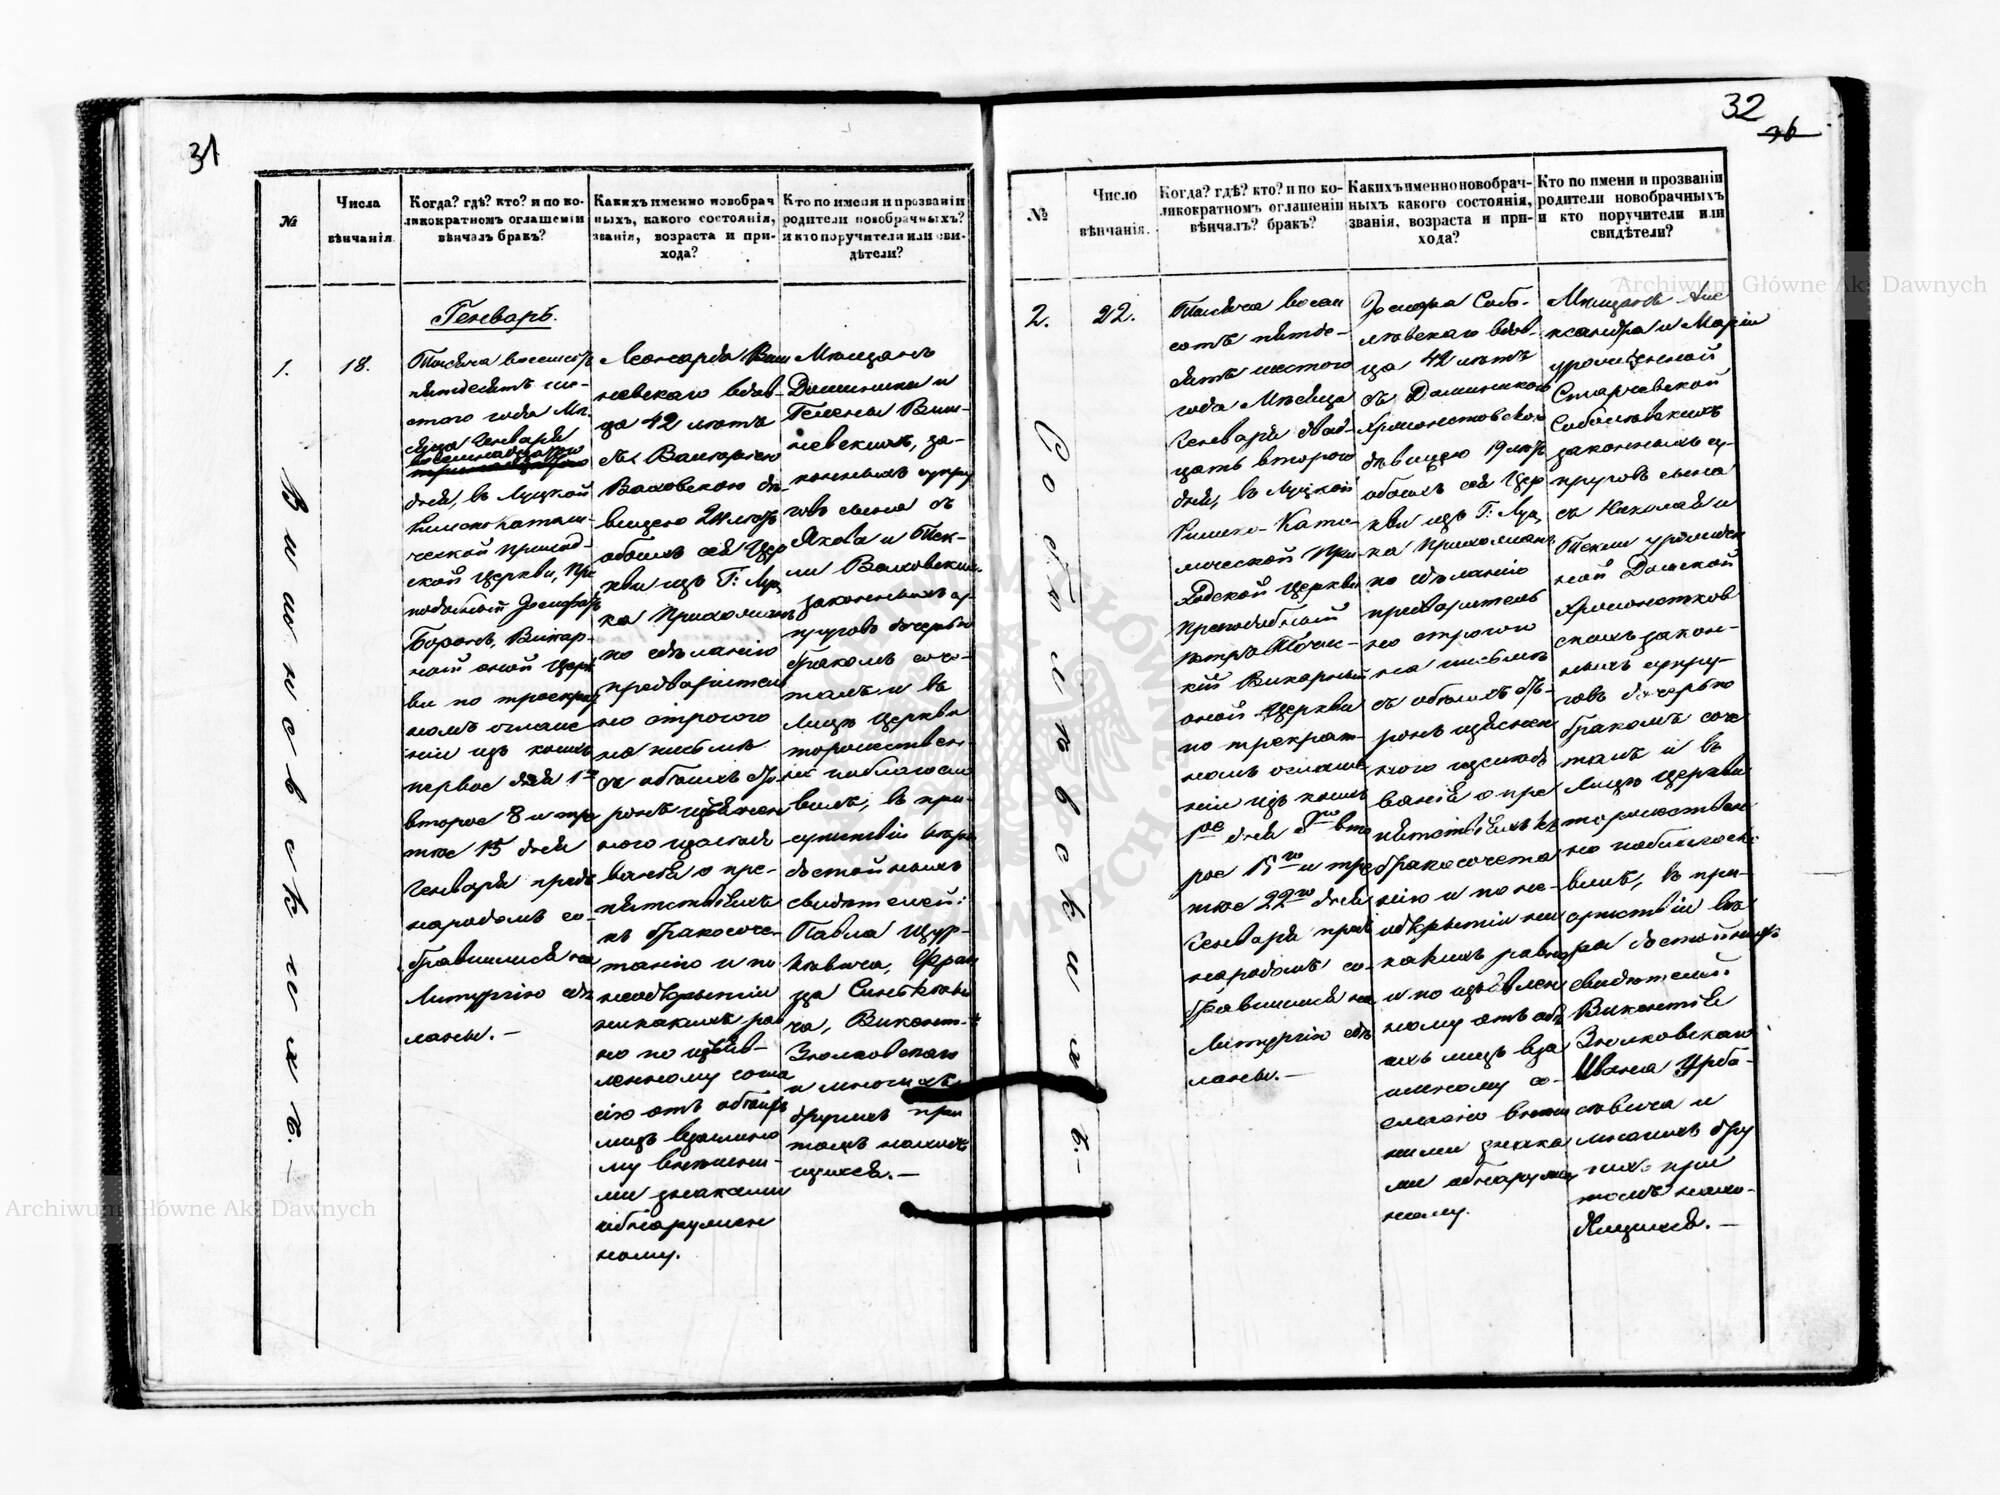 31
№
Числа
вѣнчанія.
Когда? гдѣ? кто? и по ко-
ликократномъ оглашеніи
вѣнчалъ бракъ?
Какихъ именно новобрач
ныхъ, какого состоянія,
званія, возраста и при-
хода?
Кто по имени и прозванію
родители новобрачныхъ?
и кто поручители или сви-
дѣтели?
Генварь.
1.
18.
Вишневскихъ.—
Тысяча восемсотъ
пятдесятъ ше-
стого года Мѣ-
сяца Генваря
восемнадцатого
дня, въ Луцкой
Римско Католи-
ческой приход-
ской Церкви, Пре
подобный
Викар-
ный оной Церк
ви по троекрат
номъ оглаше
ніи изъ коихъ
первое дня 1го
второе 8 и тре
тіе 15 дня
Генваря предъ
народомъ со-
бравшимся на
Литургію сдѣ
ланы.—
Леонарда Виш
невскаго вдов-
ца 42 лѣтъ
съ
Валовскою дѣ-
вицею лѣтъ
обоихъ сей Цер
кви изъ Г: Луц
ка Прихожанъ
по сдѣланію
предварительно
но строгого
на письмѣ
съ обоихъ сто-
ронъ изъяснен
ного изслѣдо
ванія о пре-
пятствіяхъ
къ бракосоче-
танію и по
необкрытіи
никакихъ рав
но по изъяв-
ленному согла
сію отъ обоихъ
лицъ взаимно
му внѣшни-
ми знаками
обнаружен
ному.
Мѣщанъ
Доминика и
Гелены Виш-
невскихъ, за-
конныхъ супру
говъ сына съ
Якова и Тек-
ли Валовских
законныхъ су-
пруговъ дочерью
бракомъ соче-
талъ и въ
Лицѣ Церкви
торжествен-
но поблагосло
вилъ, въ при-
сутствіи вѣро
достойныхъ
свидѣтелей:
Павла Щур-
ковича, Фран
ца
ча, Викент.
Зюлковскаго
и многихъ
другихъ при
томъ находя
щихся.—
32
№
Число
вѣнчанія.
Когда? гдѣ? кто? и по ко-
ликократномъ оглашеніи
вѣнчалъ? бракъ?
Какихъ именно новобрач-
ныхъ какого состоянія,
званія, возраста и при-
хода?
Кто по имени и прозванію
родители новобрачныхъ
и кто поручители или
свидѣтели?
2.
22.
Соболевскихъ.—
Тысяча восем
сотъ пятде-
сятъ шестого
года Мѣсяца
Генваря двад-
цать второго
дня, въ Луцкой
Римско-Като-
лической При-
ходской Церкви
Преподобный
Викарный
оной Церкви
по трекрат-
номъ оглаше
ніи изъ коихъ
1ое дня 8го вто
рое 15го и тре
тіе 22го дня
Генваря предъ
народомъ со-
бравшимся на
Литургію сдѣ
ланы.—
Іосифа Собо-
левскаго вдов-
ца 42 лѣтъ
съ Доминикою
Хржонстовскою
дѣвицею 19 лѣтъ
обоихъ сей Цер
кви изъ Г: Луц
ка Прихожанъ
по сдѣланію
предваритель
но строгого
на письмѣ
съ обоихъ сто-
ронъ изъяснен
ного изслѣдо
ванія о пре
пятствіяхъ къ
бракосочета
нію и по не-
обкрытіи ни
какихъ равно
и по изъявлен
ному отъ обо
ихъ лицъ вза
имному со-
гласію внѣш
ними знака
ми обнаружен
ному.
Мѣщанъ Але
ксандра и Маріи
урожденной
Старчевской
Соболевскихъ
законныхъ су-
пруговъ сына
съ Николая и
Текли урожден
ной Домской
Хржонстков
скихъ закон-
ныхъ супру-
говъ дочерью
бракомъ соче
талъ и въ
Лицѣ Церкви
торжествен
но поблагосло
вилъ, въ при-
сутствіи вѣ
ро достойныхъ
свидѣтелей:
Викентія
Зюлковскаго
Ивана Урба-
новича и
многихъ дру
гихъ при
томъ нахо-
дящихся.—
Archiwum Główne Akt Dawnych
Archiwum Główne Akt Dawnych